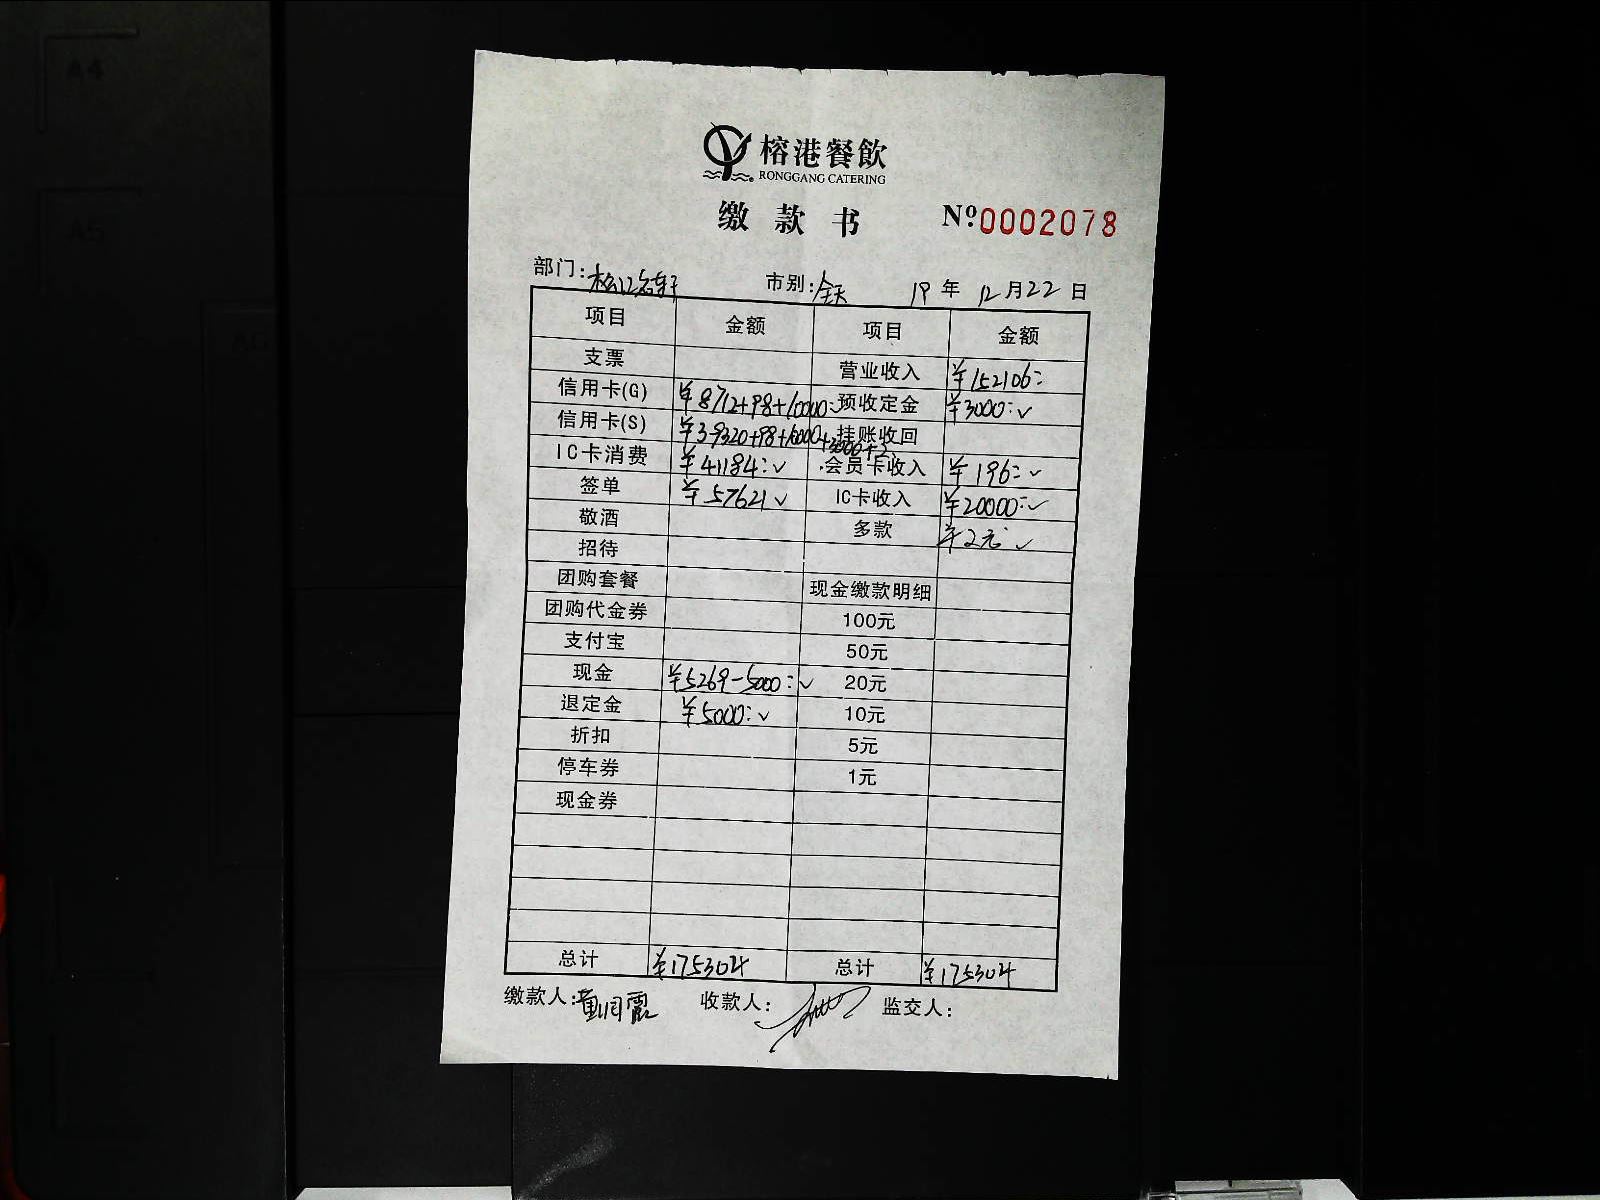 A4
A5
榕港餐飲
RONGGANG CATERING
缴款书 №0002078
部门:松江名轩 市别:全天 19年12月22日
项目 金额 项目 金额
支票 营业收入 ¥152106:
信用卡(G) ¥8712+98+10000: 预收定金 ¥3000:✓
信用卡(S) ¥39320+98+10000+3000+2 挂账收回
IC卡消费 ¥41184:✓ 会员卡收入 ¥196:✓
签单 ¥57621✓ IC卡收入 ¥20000:✓
敬酒 多款 ¥2元:✓
招待
团购套餐 现金缴款明细
团购代金券 100元
支付宝 50元
现金 ¥5269-5000:✓ 20元
退定金 ¥5000:✓ 10元
折扣 5元
停车券 1元
现金券
总计 ¥175304 总计 ¥175304
缴款人:董润霞 收款人: 监交人: